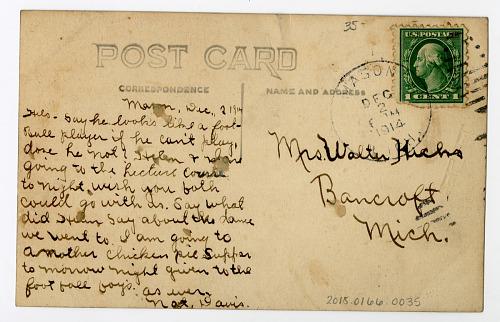 35-
POST CARD
CORRESPONDENCE
NAME AND ADDRESS
U.S. POSTAGE
1 CENT 1
MASON
DEC
2
1914
MICH.
Mason, Dec, 2 1914
Say he looks like a foot-
ball player if he can't play,
dose he not? Helen &
going to the Lecture Course
to night, wish you both
could go with us. Say what
did Helen say about the dance
we went to. I am going to
a mother chicken pie supper
to morrow night given to the
foot ball boys. as ever,
Davis.
Mrs. Walter Hicks
Bancroft,
Mich.
2018.0166.0035